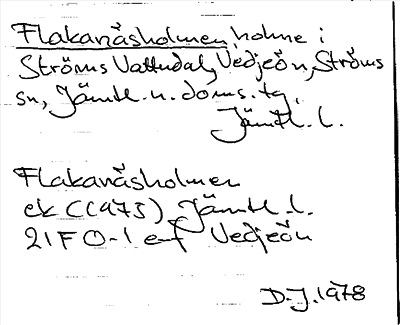 Flakanäsholmen, holme i
Ströms Vattudal, Vedjeön, Ströms
sn, Jämtl. n. doms. tg,
Jämtl. l.
Flakanäsholmen
ek ((1973) Jämtl. l.
21F 0-1 ef Vedjeön
D. J. 1978